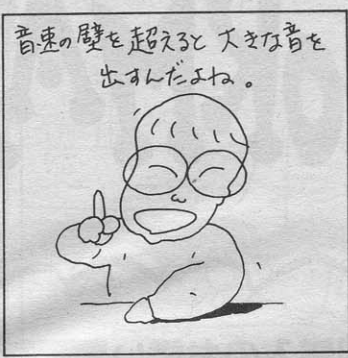 音速の壁を超えると 大きな音を
出すんだよね。